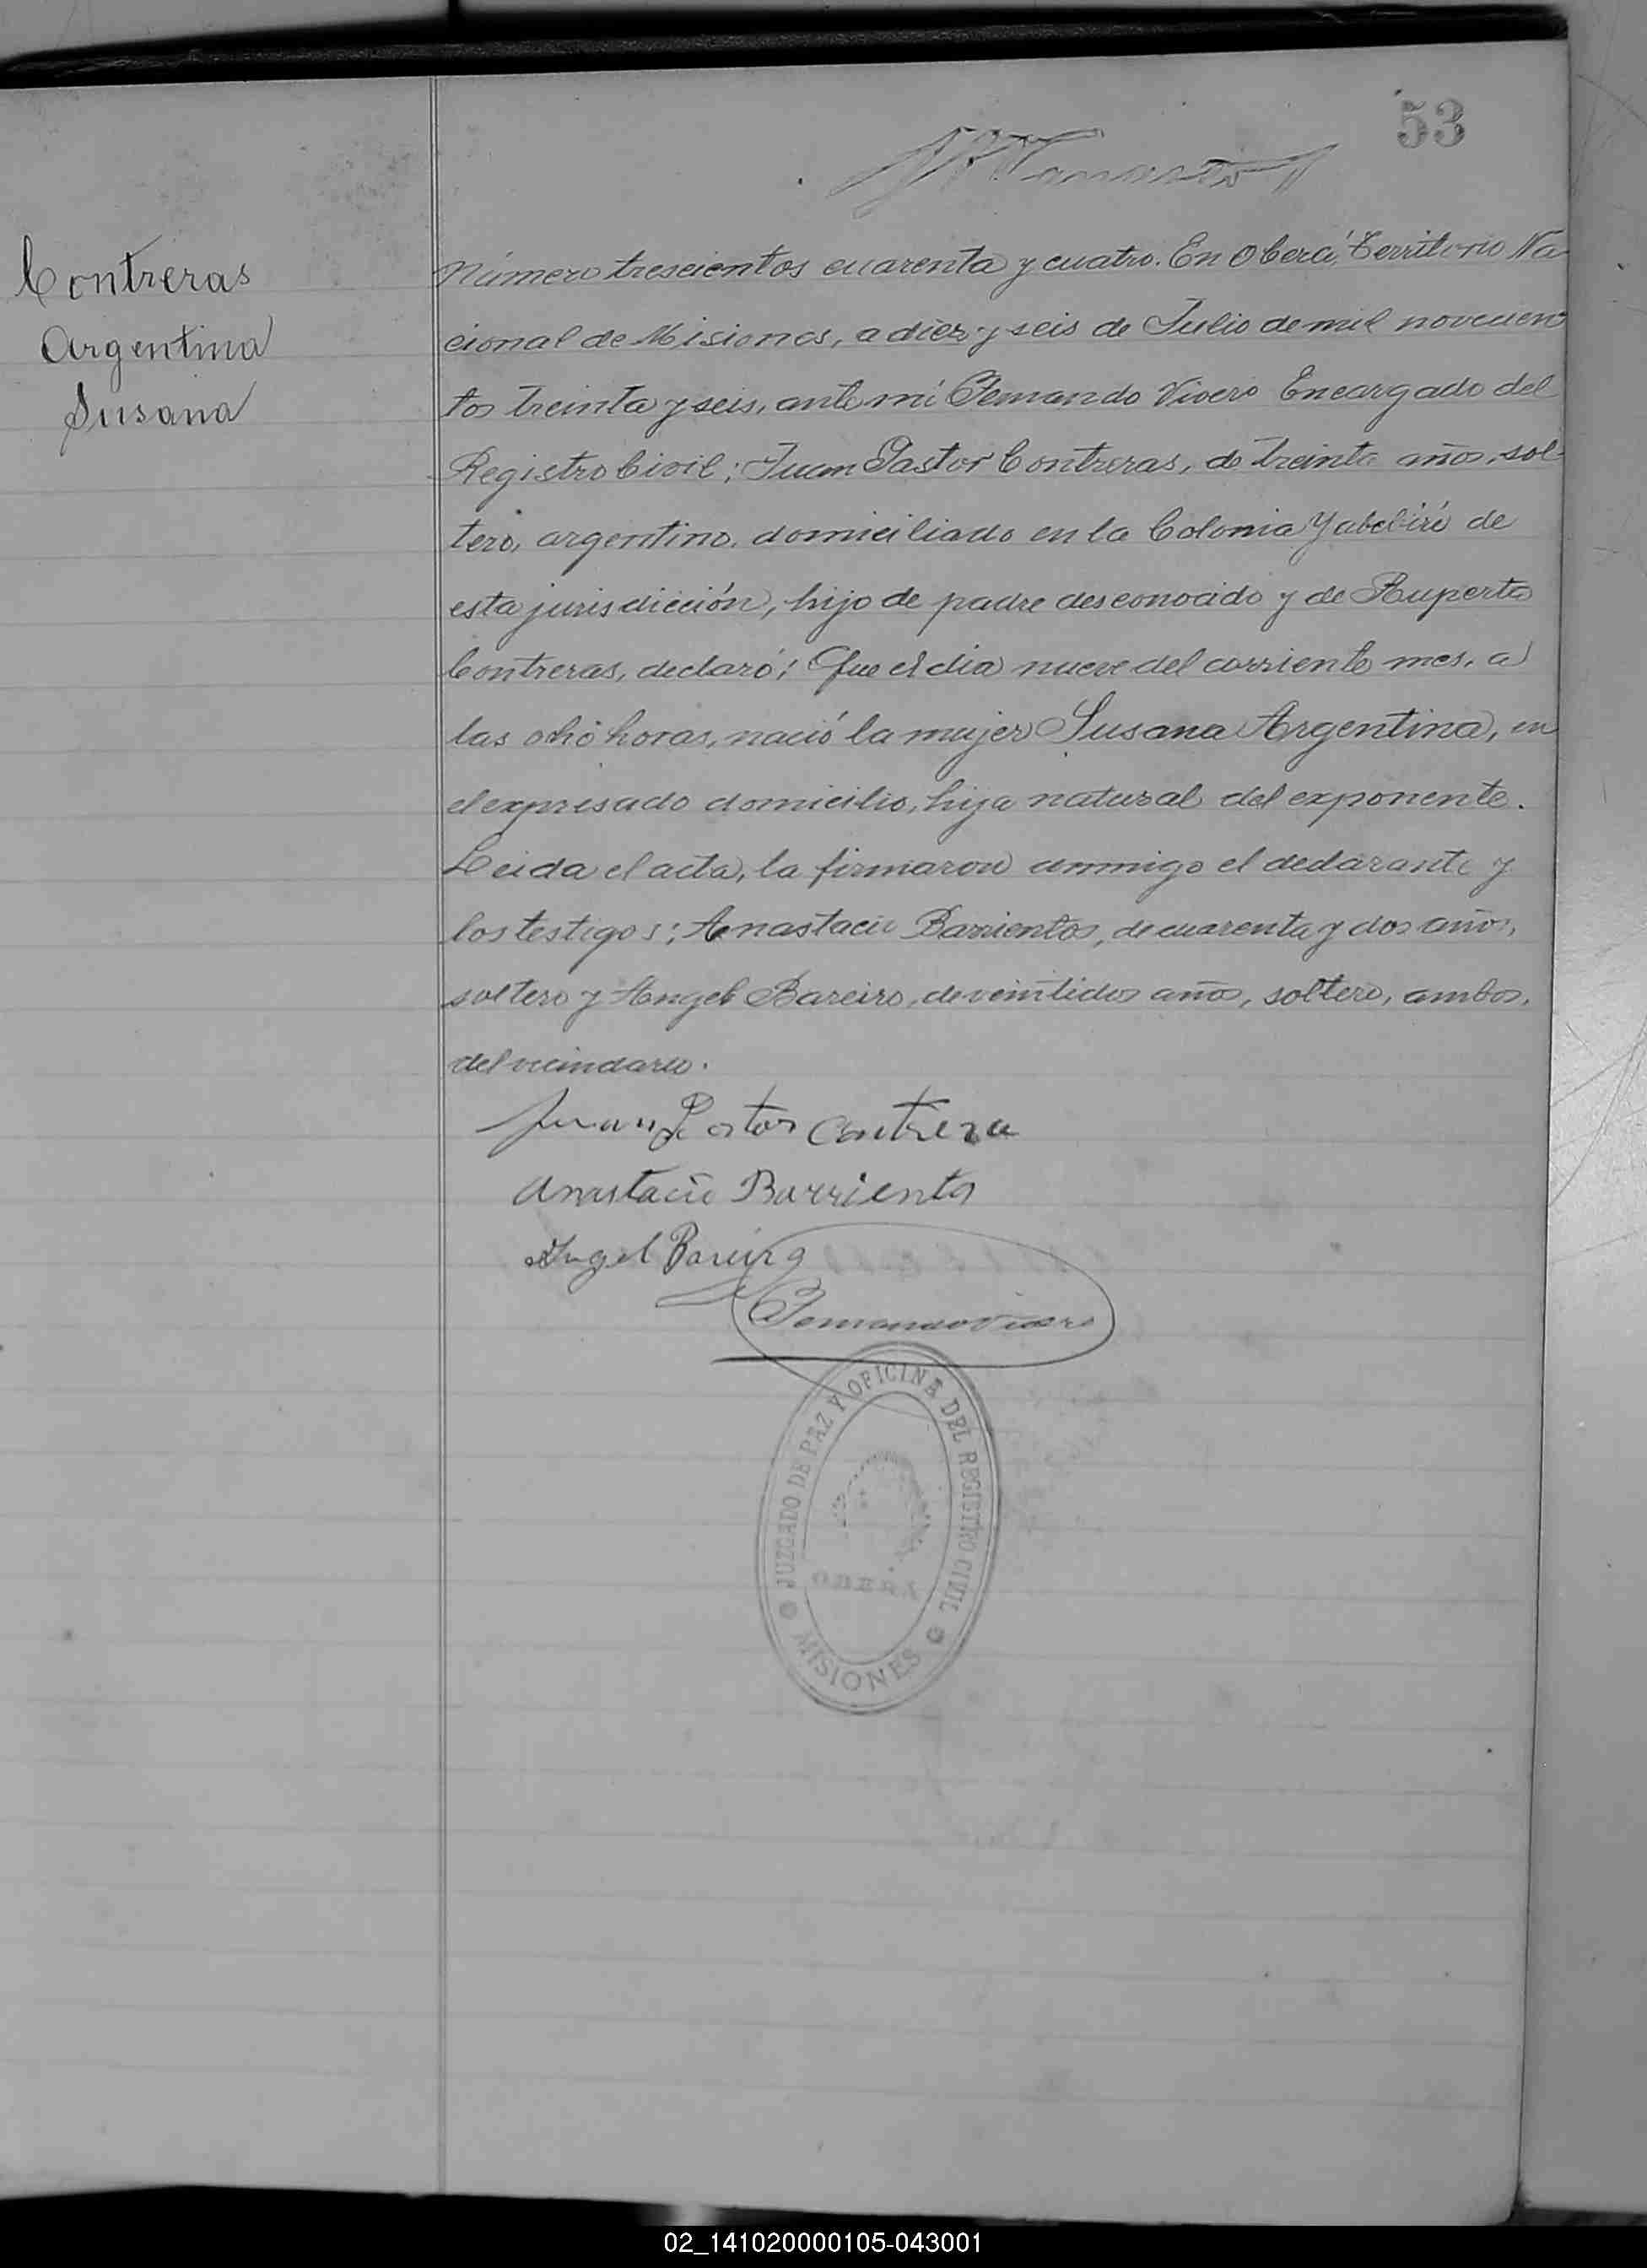 53
Contreras
Argentina
Susana
Número trescientos cuarenta y cuatro. En Oberá, Territorio Na-
cional de Misiones, a diez y seis de Julio de mil novecien
tos treinta y seis, ante mí Fernando Vivero Encargado del
Registro Civil; Juan Pastor Contreras, de treinta años, sol-
tero, argentino, domiciliado en la Colonia Yabebirí de
esta jurisdicción, hijo de padre desconocido y de Ruperta
Contreras, declaró; Que el día nueve del corriente mes, a
las ocho horas, nació la mujer Susana Argentina, en
el expresado domicilio, hija natural del exponente.
Leida el acta, la firmaron conmigo el declarante y
los testigos; Anastacio Barrientos, de cuarenta y dos años,
soltero y Angel Bareiro, de veintidos años, soltero, ambos,
del vecindario.
Juan Pastor Contrera
Anastacio Barrientos
Angel Bareiro
Fernando Vivero
JUZGADO DE PAZ Y OFICINA DEL REGISTRO CIVIL
OBERA
MISIONES
02_141020000105-043001